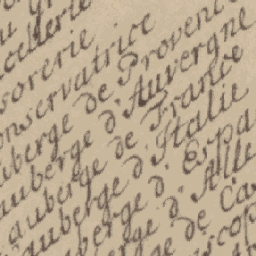 sorerie
onservatrice
auberge de Provence
auberge d'Auvergne
auberge de France
auberge d'Italie
auberge d'Espa
berge d'Alle
ge de Ca